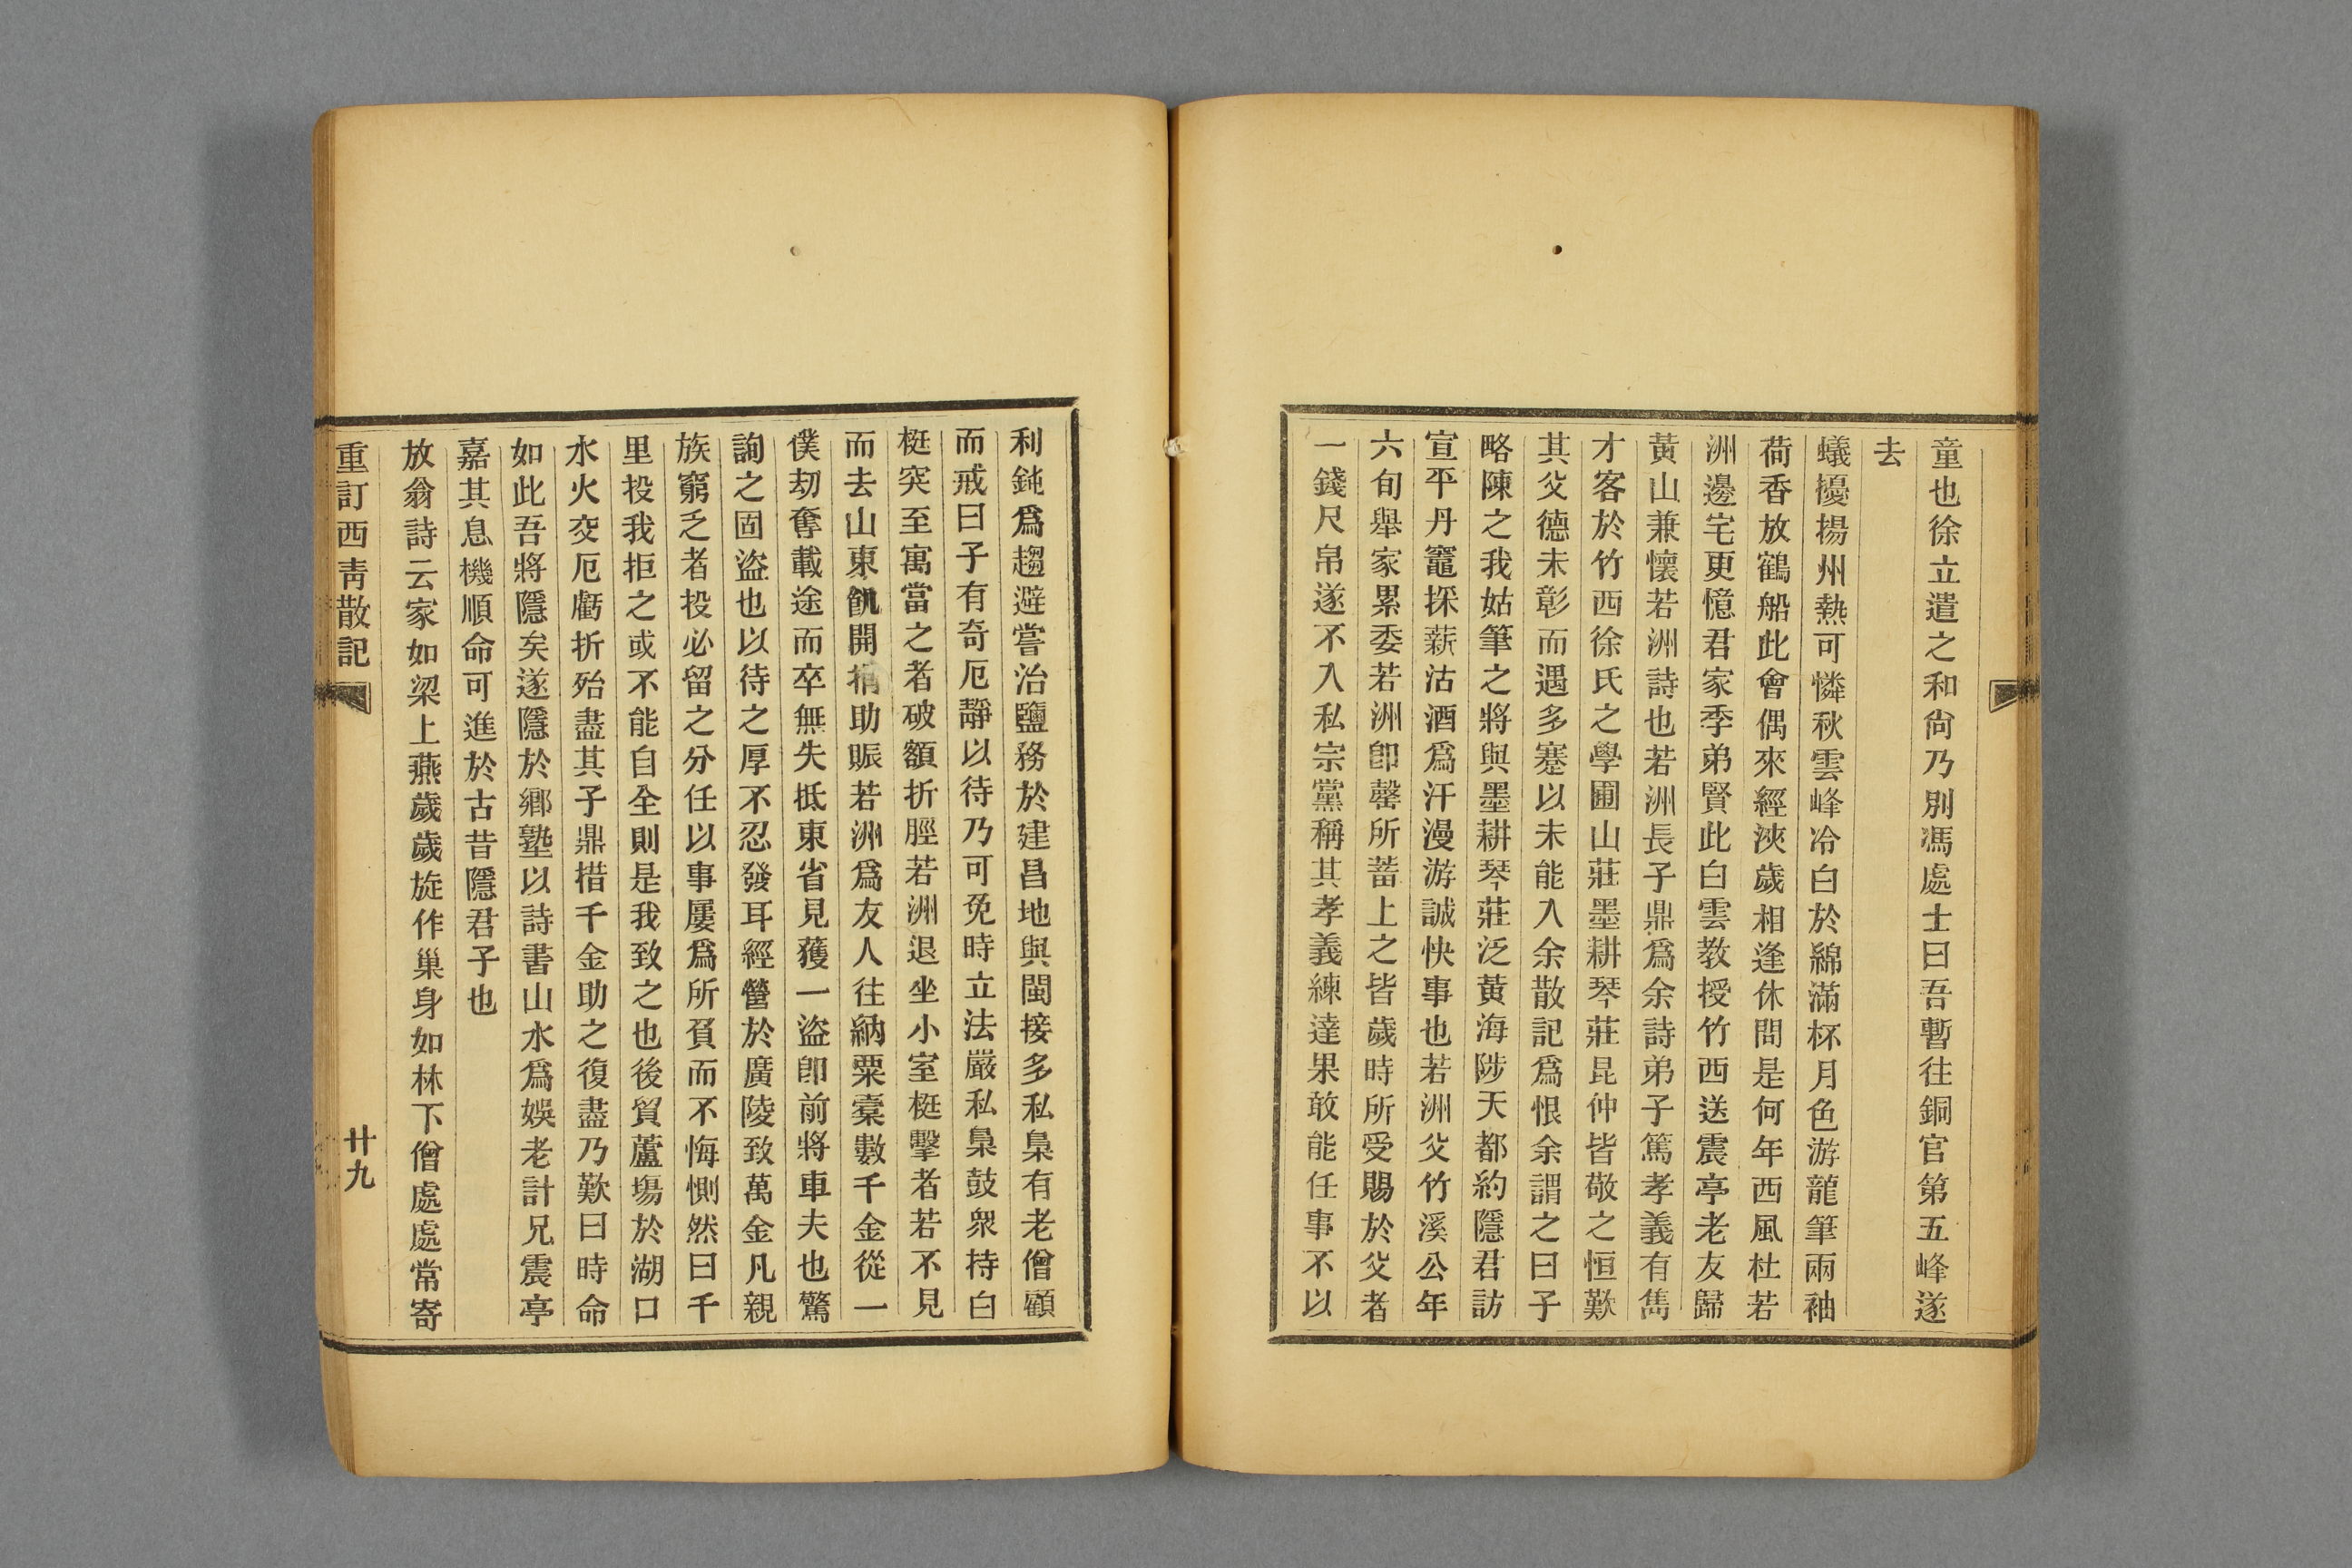 童也徐立遣之和尙乃別馮處士曰吾暫往銅官第五峰遂
去
蟻擾揚州熱可憐秋雲峰冷白於綿滿杯月色游龍筆兩袖
荷香放鶴船此會偶來經浹歲相逢休問是何年西風杜若
洲邊宅更憶君家季弟賢此白雲教授竹西送震亭老友歸
黃山兼懷若洲詩也若洲長子鼎爲余詩弟子篤孝義有雋
才客於竹西徐氏之學圃山莊墨耕琴莊昆仲皆敬之恒歎
其父德未彰而遇多蹇以未能入余散記爲恨余謂之曰子
略陳之我姑筆之將與墨耕琴莊泛黃海陟天都約隱君訪
宣平丹竈採薪沽酒爲汗漫游誠快事也若洲父竹溪公年
六旬舉家累委若洲卽罄所蓄上之皆歲時所受賜於父者
一錢尺帛遂不入私宗黨稱其孝義練達果敢能任事不以
利鈍爲趨避嘗治鹽務於建昌地與閩接多私梟有老僧顧
而戒曰子有奇厄靜以待乃可免時立法嚴私梟鼓衆持白
梃突至寓當之者破額折脛若洲退坐小室梃擊者若不見
而去山東飢開捐助賑若洲爲友人往納粟橐數千金從一
僕刧奪載途而卒無失抵東省見獲一盜卽前將車夫也驚
詢之固盜也以待之厚不忍發耳經營於廣陵致萬金凡親
族窮乏者投必留之分任以事屢爲所負而不悔惻然曰千
里投我拒之或不能自全則是我致之也後貿蘆塲於湖口
水火交厄虧折殆盡其子鼎措千金助之復盡乃歎曰時命
如此吾將隱矣遂隱於鄉塾以詩書山水爲娛老計兄震亭
嘉其息機順命可進於古昔隱君子也
放翁詩云家如梁上燕歲歲旋作巢身如林下僧處處常寄
重訂西靑散記
廿九